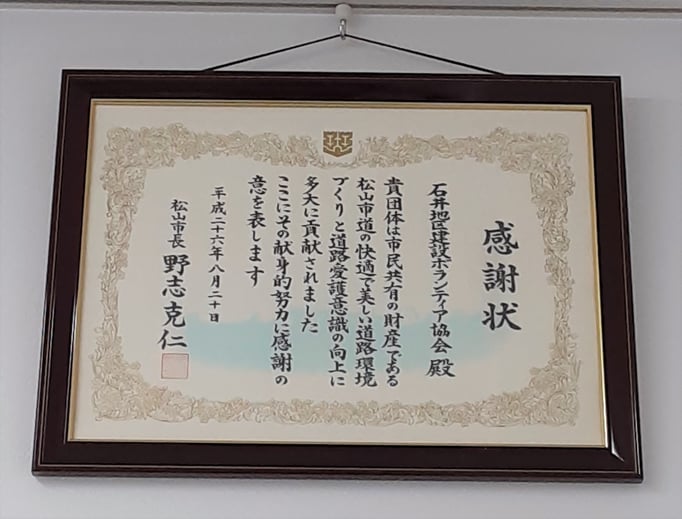 感謝状
石井地区建設ボランティア協会 殿
貴団体は市民共有の財産である
松山市道の快適で美しい道路環境
づくりと道路愛護意識の向上に
多大に貢献されました
ここにその献身的努力に感謝の
意を表します
平成二十六年八月二十日
松山市長 野志克仁